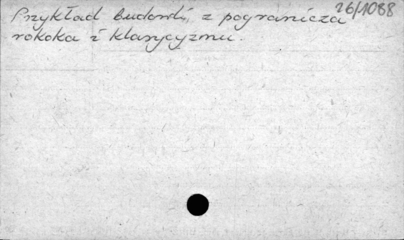 Przykład budowli z pogranicza 26/1088
rokoka i klasycyzmu.